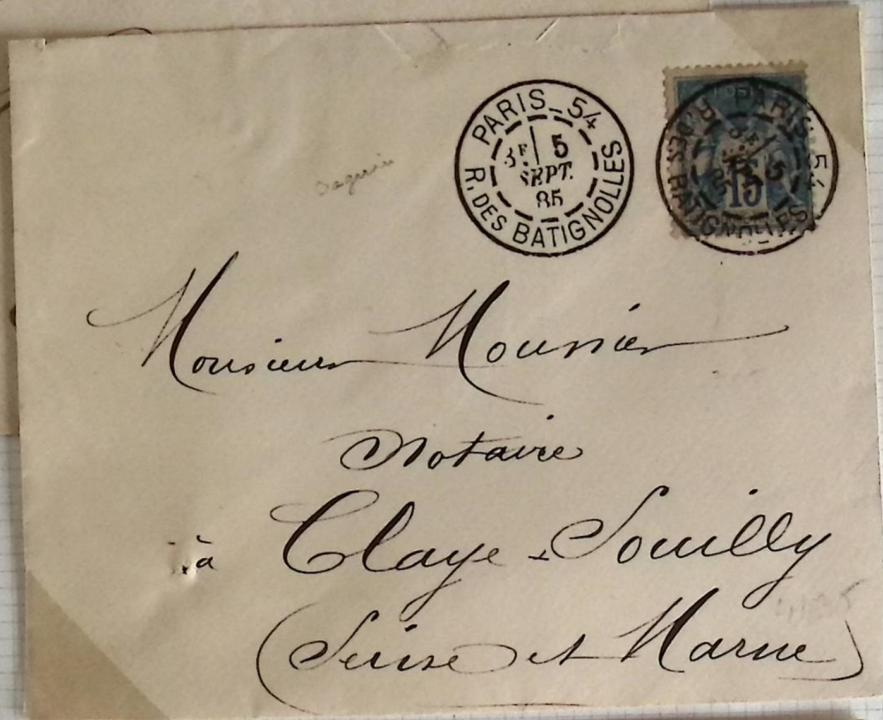 PARIS_54
3E 5
SEPT.
85
R. DES BATIGNOLLES
PARIS 54
5
15
R. DES BATIGNOLLES
Daguin
Monsieur Moussier
Notaire
à Claye-Souilly
(Seine et Marne)